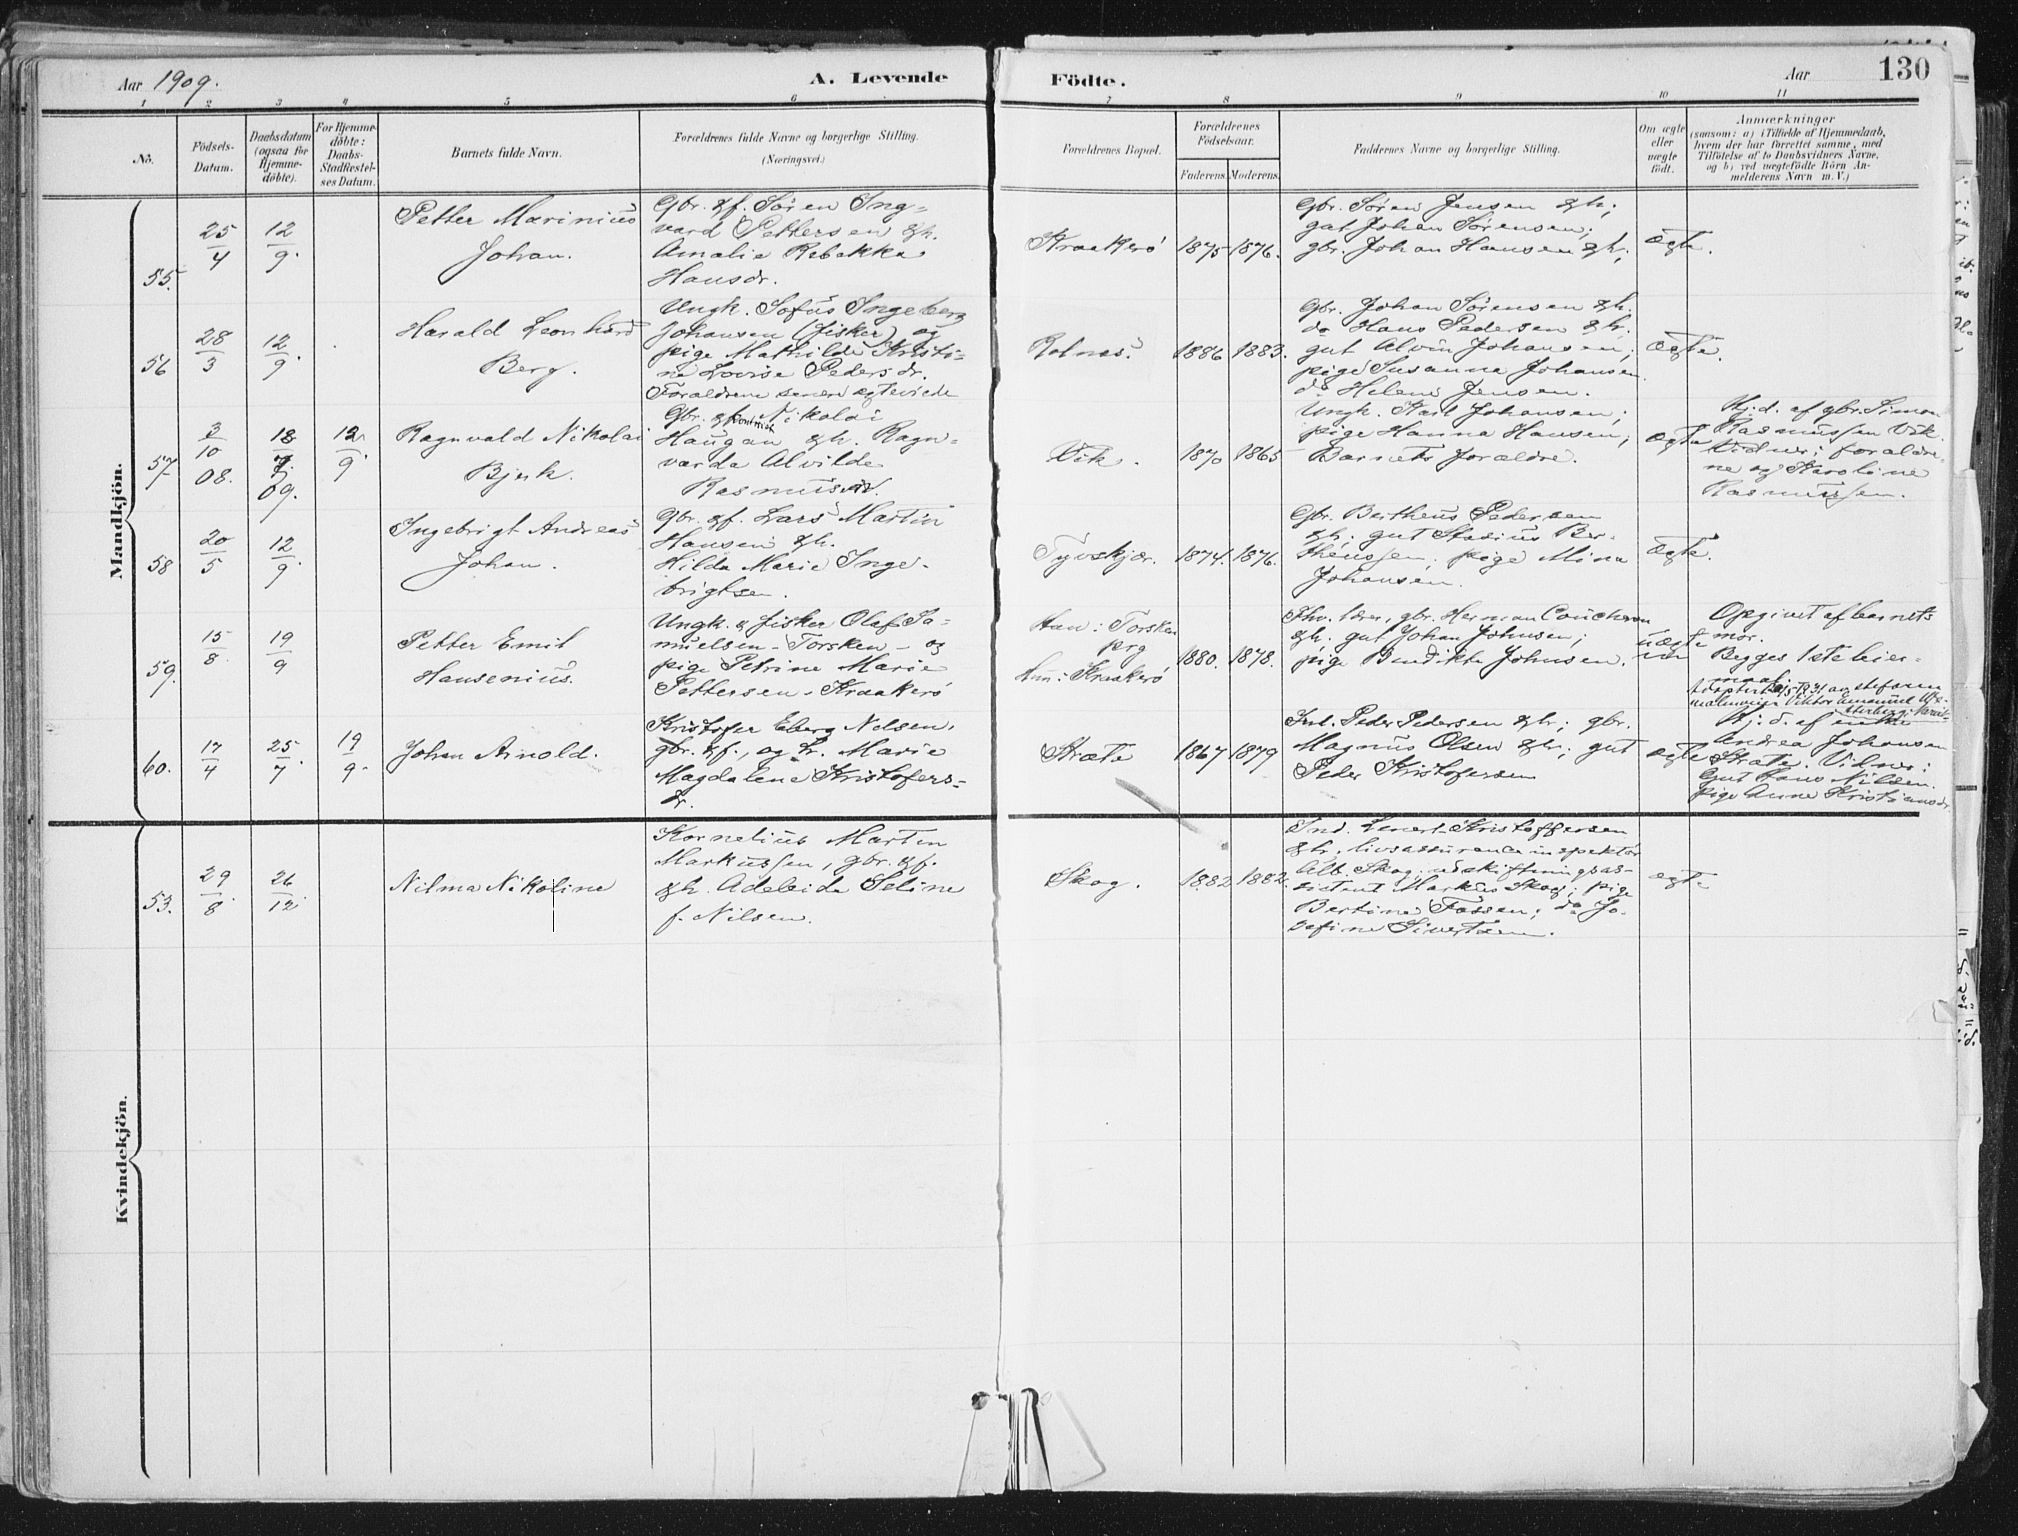 Aar 1909.
A. Levende Födte.
Aar
130
1 2 3 4 5 6 7 8 9 10 11
No.
Födsels-
Datum.
Daabsdatum
(ogsaa for
Hjemme-
döbte).
For Hjemme-
döbte:
Daabs-
Stadfæstel-
ses Datum.
Barnets fulde Navn.
Forældrenes fulde Navne og borgerlige Stilling.
(Næringsvei.)
Forældrenes Bopæl.
Forældrenes
Födselsaar.
Faderens. Moderens.
Faddernes Navne og borgerlige Stilling.
Om ægte
eller
uægte
födt.
Anmærkninger
(saasom: a) i Tilfælde af Hjemmedaab,
hvem der har forrettet samme, med
Tilföielse af to Daabsvidners Navne,
og b) ved uægtefödte Börn An-
melderens Navn m. V.)
Mandkjön.
55.
25/4
12/9.
Petter Marinius
Johan.
Gbr. & f. Sören Ing-
vard Pettersen & h.
Amalie Rebekka
Hansdr.
Kraakerö
1875 1876.
Gbr. Sören Jensen & h;
gut Johan Sörensen;
gbr. Johan Hansen & h;
Ægte.
56
28/3
12/9.
Harald Leonhard
Berg.
Ungk. Sofus Ingeberg
Johansen (fisker) og
pige Mathilde Kristi-
ne Lovise Pedersdr.
Forældrene senere egteviede
Rolnæs.
1886 1883.
Gbr. Johan Sörensen & h;
do Hans Pedersen & h;
gut Alvin Johansen;
pige Susanna Johansen
do Helene Jensen.
Ægte.
57
3/10
08.
18/7.
09.
12/9.
Ragnvald Nikolai
Bjerk.
Gbr. & Nikolai
Haugan & h. Ragn-
varda Alvilde
Rasmusdr.
Vik.
1870 1865
Ungk. Karl Johansen;
pige Hanna Hansen;
Barnets forældre.
Ægte
Hj.d. af gbr. Simon
Rasmussen Vik.
Vidner: foræld-
ne og Karoline
Rasmussen.
58
20/5
12/9.
Ingebrigt Andreas
Johan.
Gbr. & f. Lars Martin
Hansen & h.
Hilda Marie Inge-
brigtsen.
Tyvskjær.
1874. 1876.
Gbr. Bertheus Pedersen
& h; gut Stadius Ber-
theussen; pige Mina
Johansen.
Ægte.
59.
15/8.
19/9
Petter Emil
Hansenius.
Ungk. & fisker Olaf Sa-
muelsen - Torsken - og
pige Petrine Marie
Pettersen - Kraakerö
Han: Torsken
prg
Hun: Kraakerö
1880. 1878.
Fhv. lærer, gbr. Herman Coucheron
& h. gut Johan Johnsen;
pige Bendikte Johnsen.
uægte
Opgivet af barnets
mor.
Begges 1ste leier-
maal.
60.
17/4
25/7.
19/9.
Johan Arnold.
Kristofer Eberg Nilsen,
gbr. & f., og h. Marie
Magdalena Kristofers-
dr.
Stræte
1867 1879
Ind. Peder Pedersen & h; gbr.
Magnus Olsen & h; gut
Peder Kristofersen
ægte
Hj.d. af enke
Andrea Johansen
Stræte. Vidner:
Gut Hans Nilsen.
pige Anne Kristiansdr.
Kvindekjön.
53.
29/8.
26/12.
Nilma Nikoline
Kornelius Martin
Markussen, gbr. & f.
& h. Adeleide Seline
f. Nilsen.
Skog.
1882 1882.
Ind. Lenert Kristoffersen
& h, livsassuranceinspektör
Alb. Skog; udskiftningsas-
sistent Markus Skog; pige
Bertine Fossen; do Jo-
sefine Sivertsen.
ægte